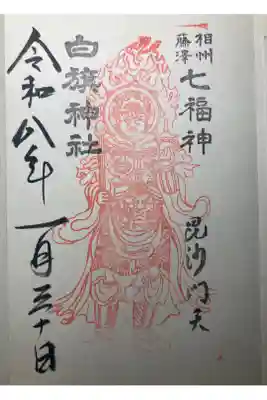 相州
藤澤
七福神
毘沙門天
白旗神社
令和八年一月三十日